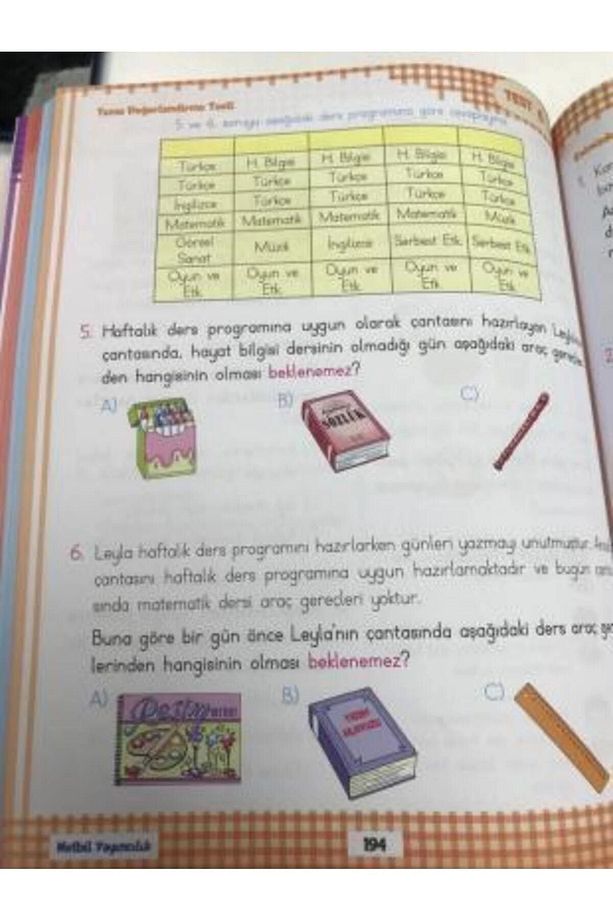 Tema Değerlendirme Testi
TEST
5 ve 6. soruyu aşağıdaki ders programına göre cevaplayınız.
Türkçe H. Bilgisi H. Bilgisi H. Bilgisi H. Bilgisi
Türkçe Türkçe Türkçe Türkçe Türkçe
İngilizce Türkçe Türkçe Türkçe Türkçe
Matematik Matematik Matematik Matematik Müzik
Görsel Sanat Müzik İngilizce Serbest Etk. Serbest Etk.
Oyun ve Etk. Oyun ve Etk. Oyun ve Etk. Oyun ve Etk. Oyun ve Etk.
5. Haftalık ders programına uygun olarak çantasını hazırlayan
çantasında, hayat bilgisi dersinin olmadığı gün aşağıdaki araç
den hangisinin olması beklenemez?
A) B) C)
SÖZLÜK
6. Leyla haftalık ders programını hazırlarken günleri yazmayı unutmuştur.
çantasını haftalık ders programına uygun hazırlamaktadır ve bugün
sında matematik dersi araç gereçleri yoktur.
Buna göre bir gün önce Leyla'nın çantasında aşağıdaki ders araç
lerinden hangisinin olması beklenemez?
A) B) C)
Resim
YAZIM
KILAVUZU
Netbil Yayıncılık
194